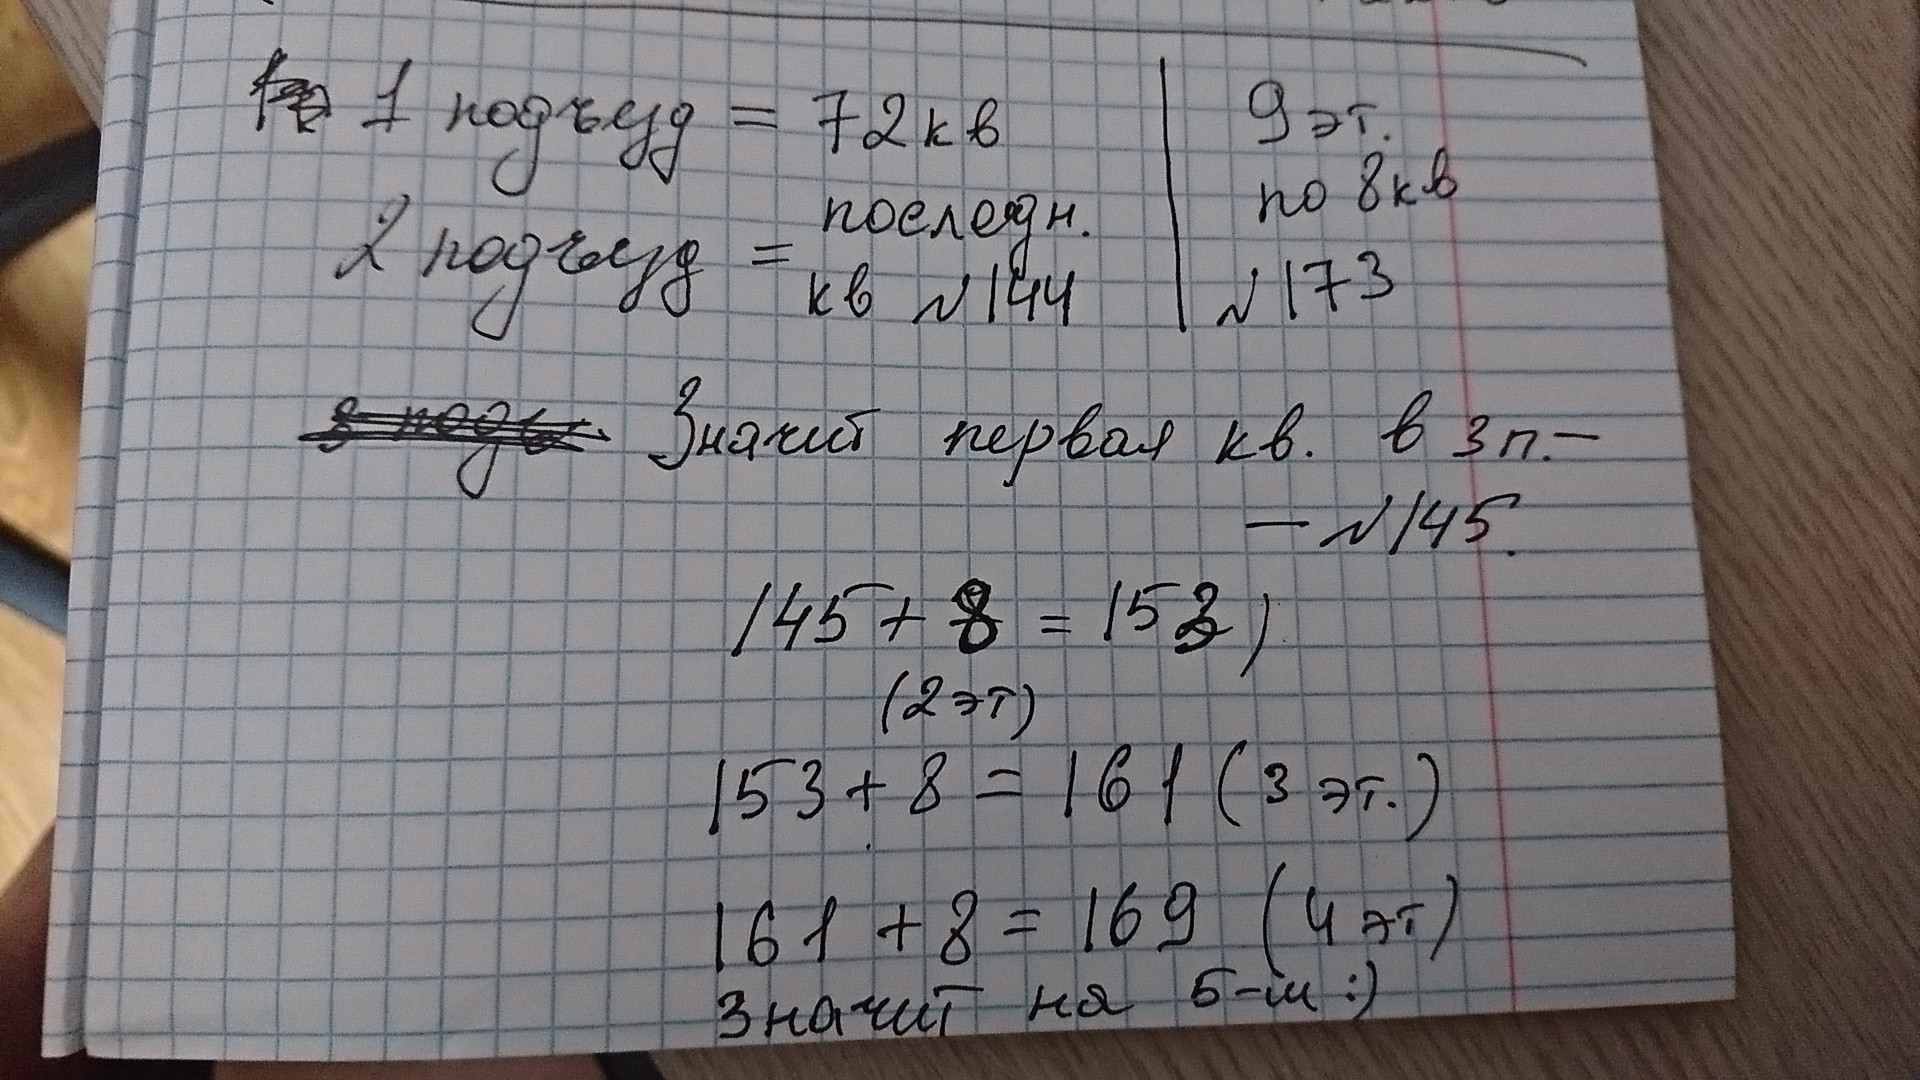 1 подъезд = 72 кв
9 эт.
по 8 кв
№173
2 подъезд = последн.
кв №144
Значит первая кв. в 3 п. –
– №145.
145 + 8 = 153)
(2 эт)
153 + 8 = 161 (3 эт.)
161 + 8 = 169 (4 эт)
Значит на 5-м :)